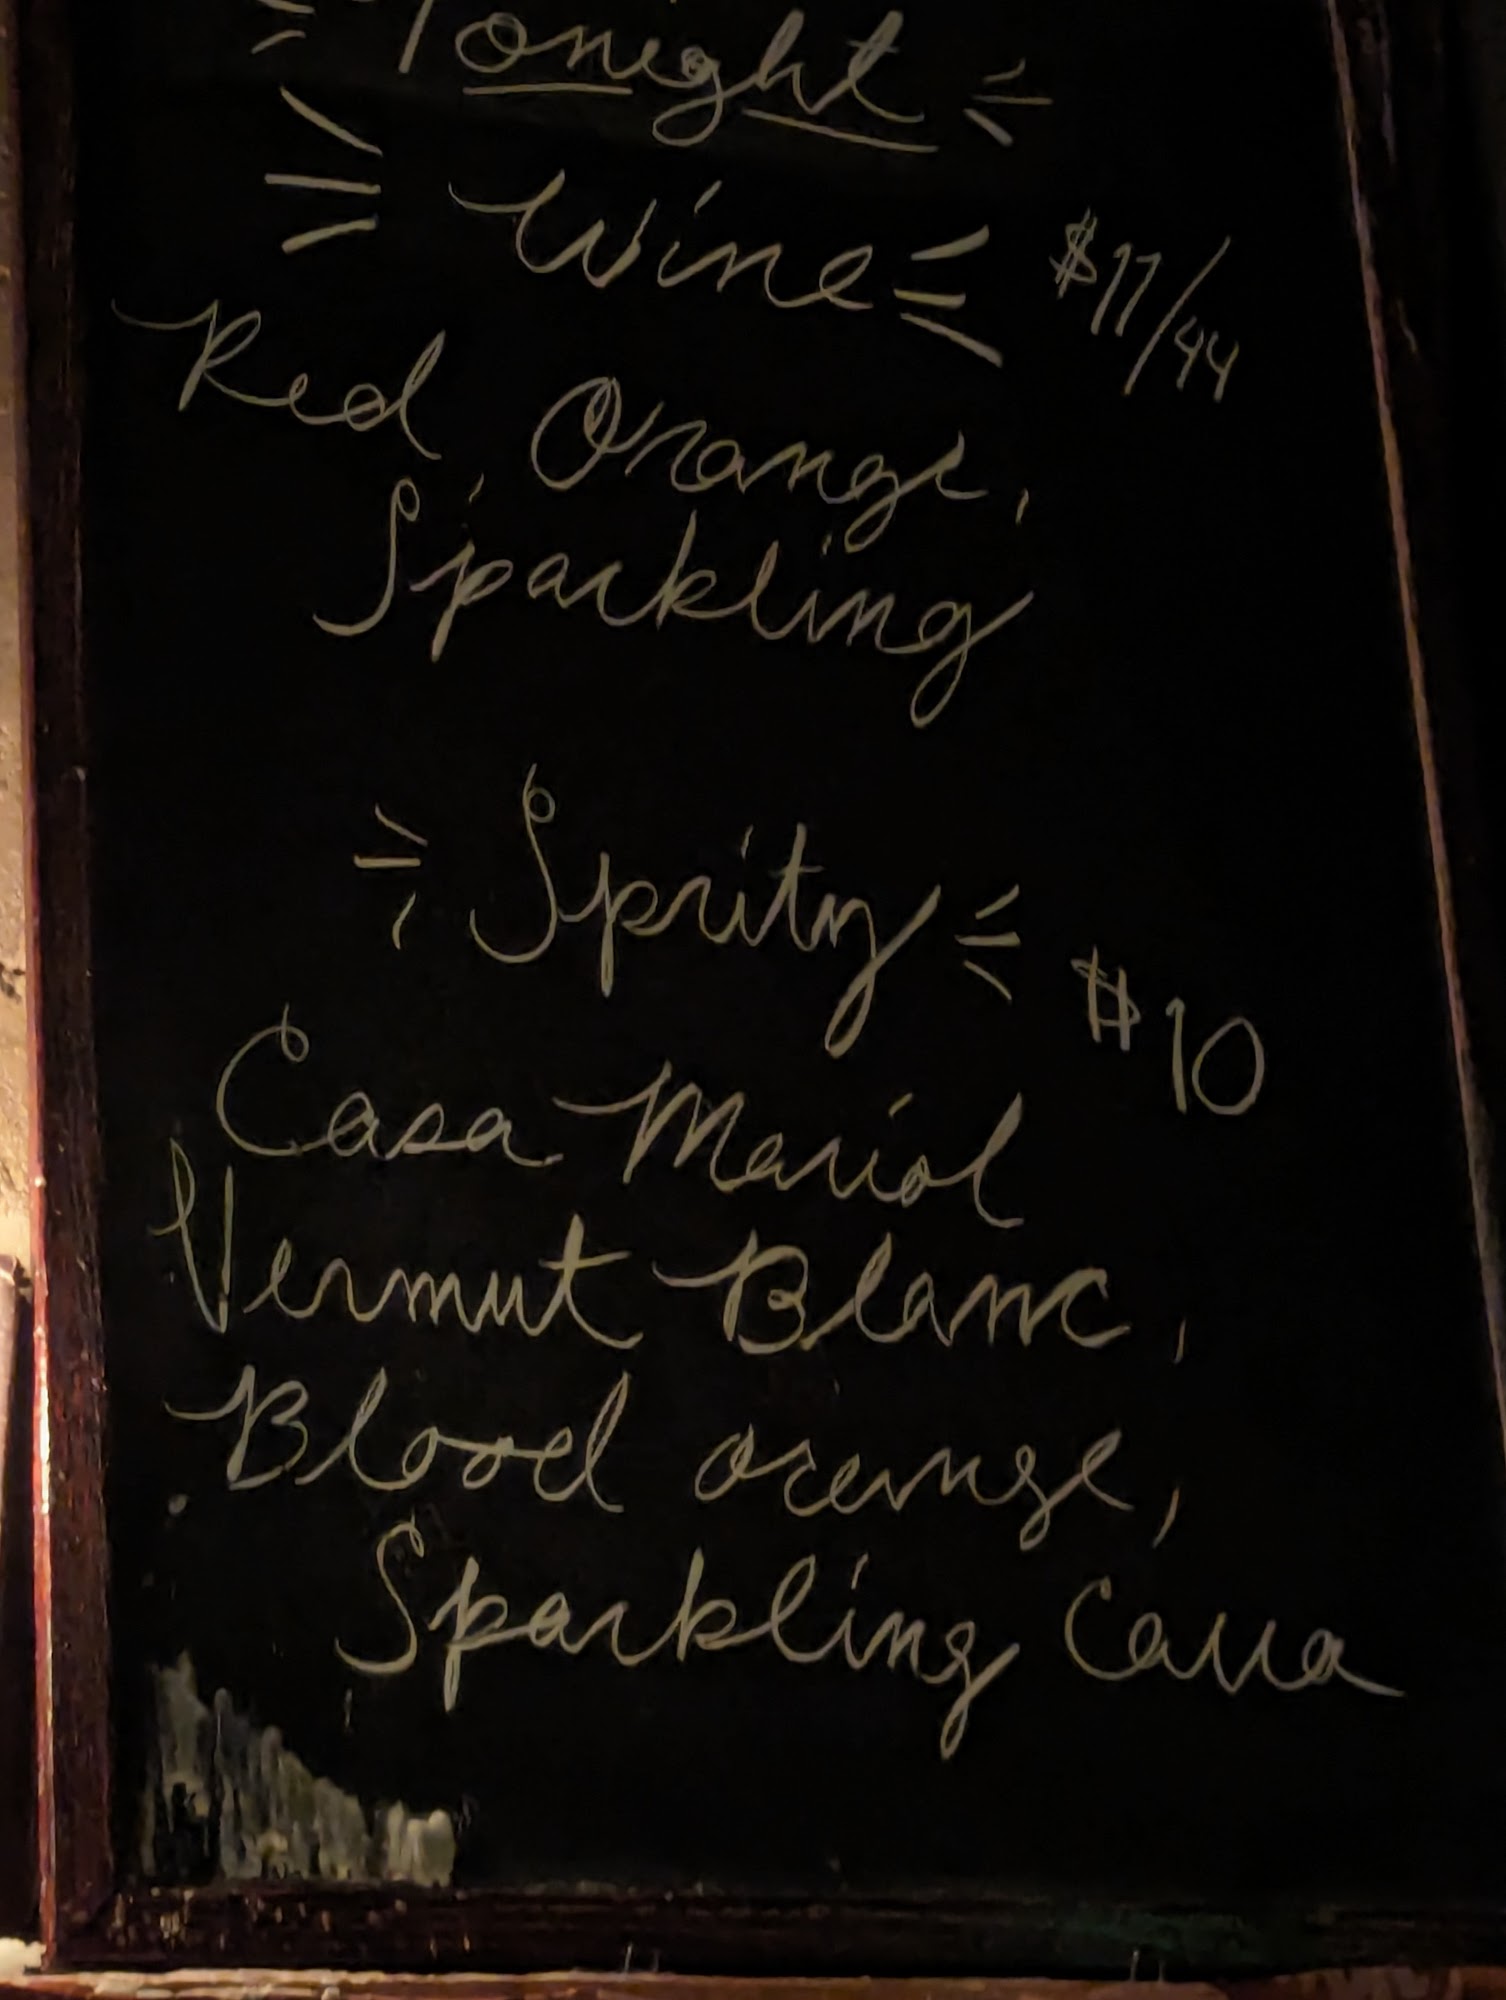 Tonight
Wine $11/44
Red, Orange,
Sparkling
Spritz $10
Casa Mariol
Vermut Blanc,
Blood orange,
Sparkling Cava